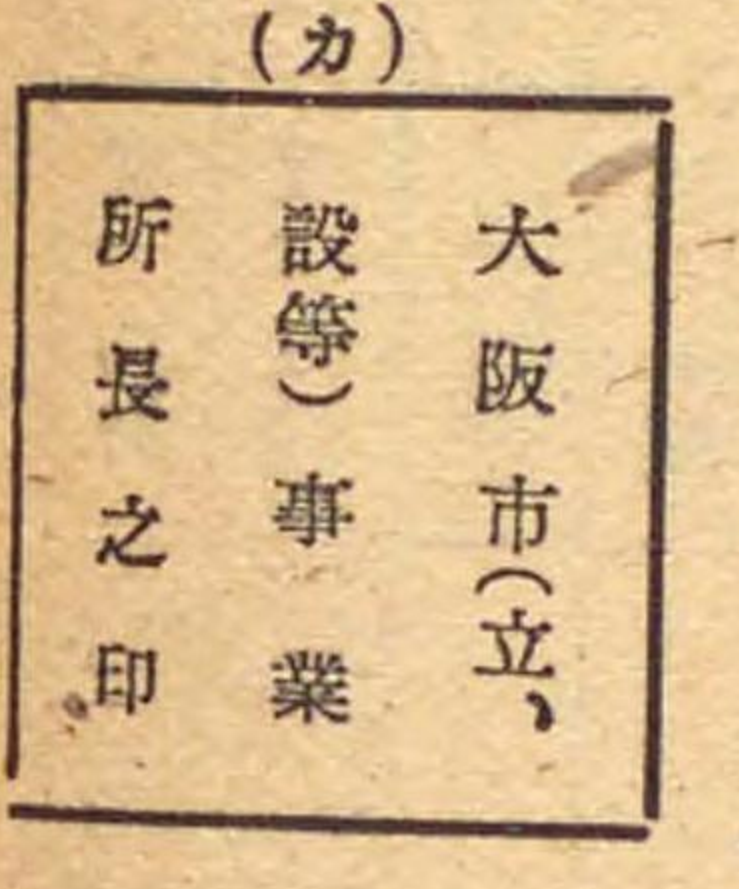 (カ)
大阪市(立、
設等)事業
所長之印